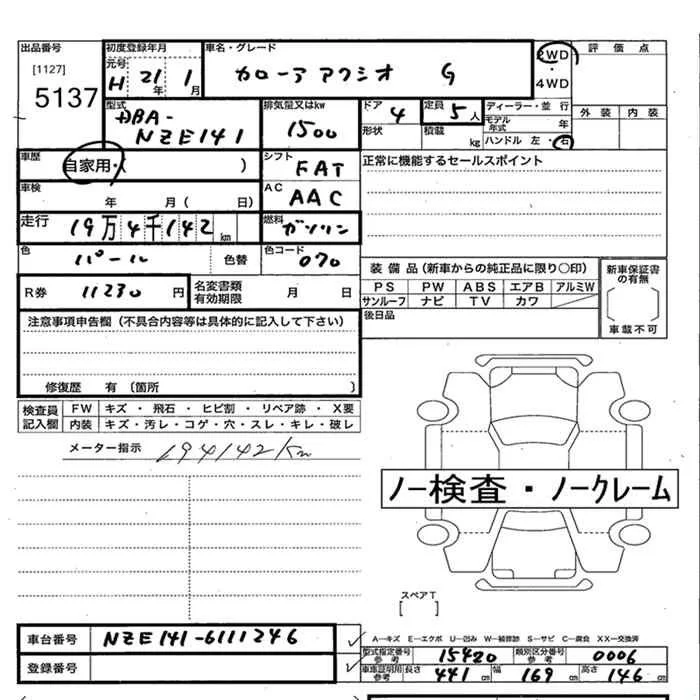 出品番号
[1127]
5137
初度登録年月
元号
H 21年 1月
車名・グレード
カローラ アクシオ G
2WD
・
4WD
評価点
外装 内装
型式
DBA-
NZE141
排気量又はkw
1500
ドア
4
定員
5人
形状
積載
kg
ディーラー・並行
モデル年式 年
ハンドル 左・右
車歴
自家用・( )
シフト
FAT
正常に機能するセールスポイント
車検
年 月( 日)
AC
AAC
走行
19万4千142km
燃料
ガソリン
色
パール
色替
色コード
070
R券
11230円
名変書類有効期限 月 日
装備品(新車からの純正品に限り○印)
PS PW ABS エアB アルミW
サンルーフ ナビ TV カワ
新車保証書の有無
車載不可
後日品
注意事項申告欄(不具合内容等は具体的に記入して下さい)
修復歴 有(箇所 )
検査員記入欄
FW キズ・飛石・ヒビ割・リペア跡・X要
内装 キズ・汚レ・コゲ・穴・スレ・キレ・破レ
メーター指示 194142Km
ノー検査・ノークレーム
スペアT
[ ]
車台番号
NZE141-6111246
登録番号
A―キズ E―エクボ U―凹み W―補修跡 S―サビ C―腐食 XX―交換済
型式指定番号 参考 15420 類別区分番号 参考 0006
車庫証明用 参考 長さ 441cm 幅 169cm 高さ 146cm